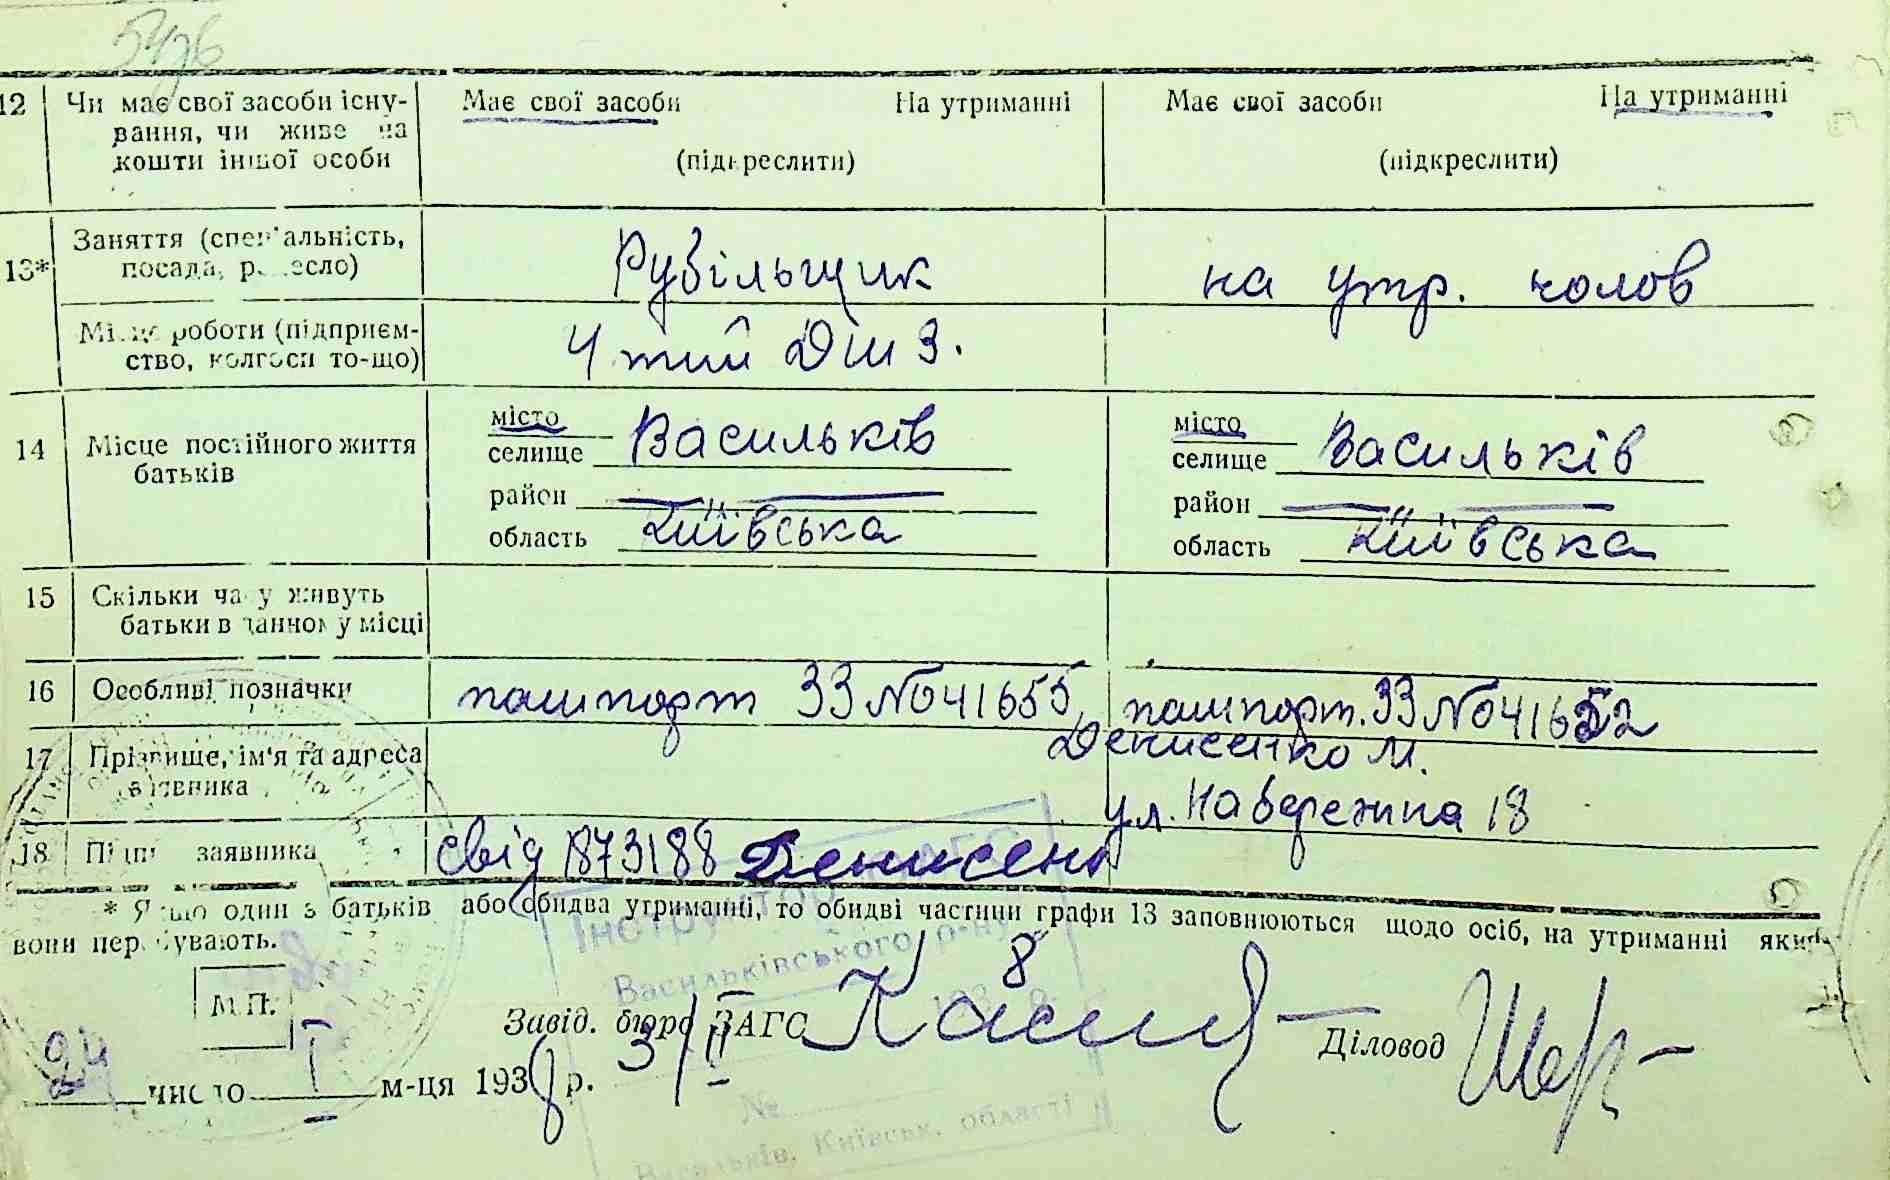 5476
12 Чи має свої засоби існу- Має свої засоби На утриманні Має свої засоби На утриманні
вання, чи живе на
кошти іншої особи (підкреслити) (підкреслити)
13* Заняття (спеціальність,
посада, ремесло) Рубільщик на утр. чолов
Місце роботи (підприєм-
ство, колгосп то-що) 4 тий Дш З.
14 Місце постійного життя
батьків
місто місто
селище Васильків селище Васильків
район район
область Київська область Київська
15 Скільки часу живуть
батьки в данному місці
16 Особливі позначки пашпорт ЗЗ №041655, пашпорт. ЗЗ №041652
17 Прізвище, ім'я та адреса Денисенко М.
заявника ул. Набережна 18
18 Підпис заявника свід 1873188 Денисенко
* Якщо один з батьків або обидва утриманні, то обидві частини графи 13 заповнюються щодо осіб, на утриманні яких
вони перебувають.
Інструктор ЗАГС
Васильківського р-ну
М.П.
Завід. бюро ЗАГС Діловод
24 число I м-ця 1938 р. 3/II 8
№
Васильків, Київськ. області